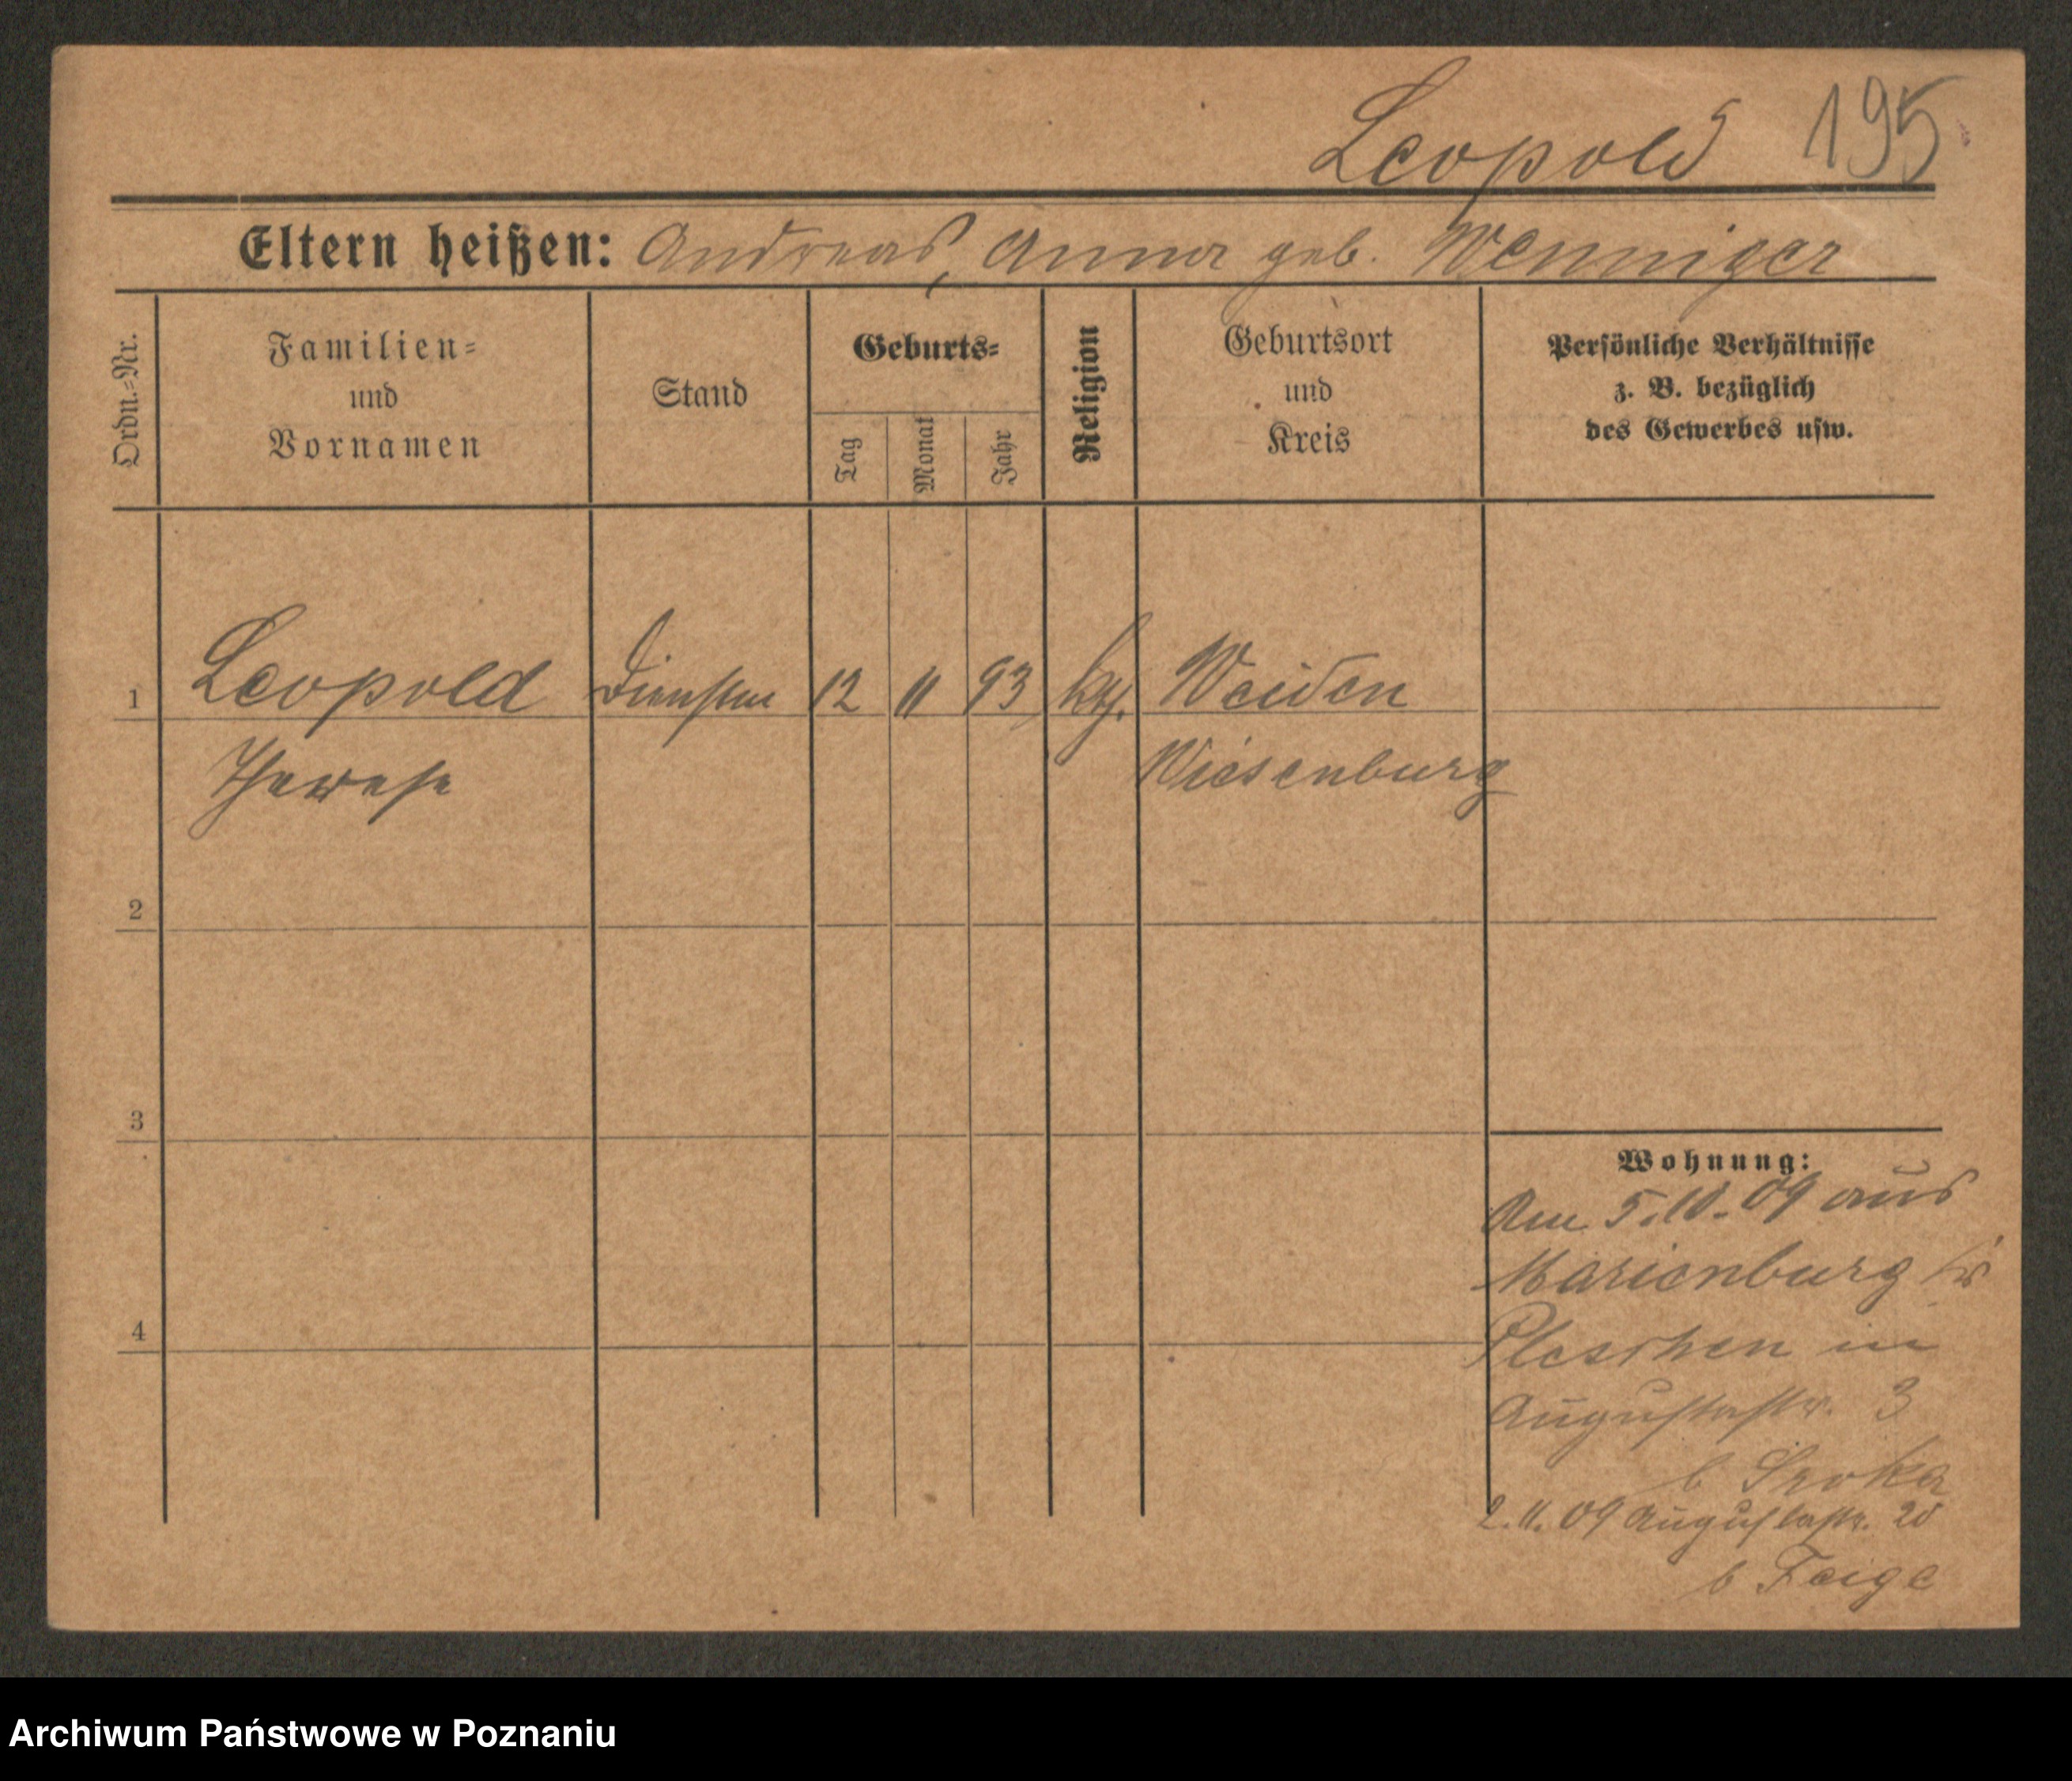 Leopold 195
Eltern heißen: Andreas, Anna geb. Wenniger
Ordn.=Nr.
Familien=
und
Vornamen
Stand
Geburts=
Tag
Monat
Jahr
Religion
Geburtsort
und
Kreis
Persönliche Verhältnisse
z. B. bezüglich
des Gewerbes usw.
1 Leopold 12 11 93 kth. Weiden
Therese Wiesenburg
2
3
4
Wohnung:
Am 5.10.09 aus
Marienburg Kr
Pleschen in
Augustastr. 3
b Sroka
2.11.09 Augustastr. 20
b Feige
Archiwum Państwowe w Poznaniu